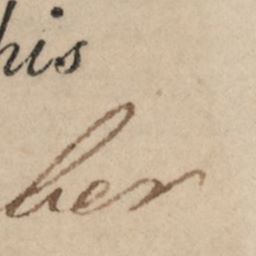 his
her